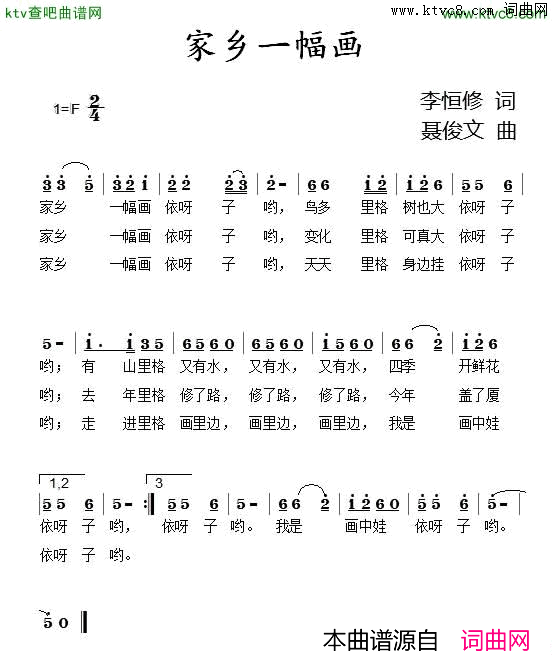 ktv查吧曲谱网
www.ktvc8.com 词曲网
www.ktvc8.com
家乡一幅画
1=F 2/4
李恒修 词
聂俊文 曲
3 3 5 | 3 2 1 | 2 2 2 3 | 2 - | 6 6 1 2 | 1 2 6 | 5 5 5 3 |
家乡 一幅画 依呀 子 哟, 鸟多 里格 树也大 依呀 子
家乡 一幅画 依呀 子 哟, 变化 里格 可真大 依呀 子
家乡 一幅画 依呀 子 哟, 天天 里格 身边挂 依呀 子
5 - | 1 . 1 | 1 3 5 | 6 5 6 0 | 6 5 6 0 | 1 5 6 0 | 6 6 2 | 1 2 6 |
哟; 有 山里格 又有水, 又有水, 又有水, 四季 开鲜花
哟; 去 年里格 修了路, 修了路, 修了路, 今年 盖了厦
哟; 走 进里格 画里边, 画里边, 画里边, 我是 画中娃
1,2 3
5 5 6 | 5 - :| 5 5 6 | 5 - | 6 6 2 | 1 2 6 0 | 5 5 6 | 5 - |
依呀 子 哟, 依呀 子 哟。 我是 画中娃 依呀 子 哟。
依呀 子 哟。
5 0
本曲谱源自 词曲网